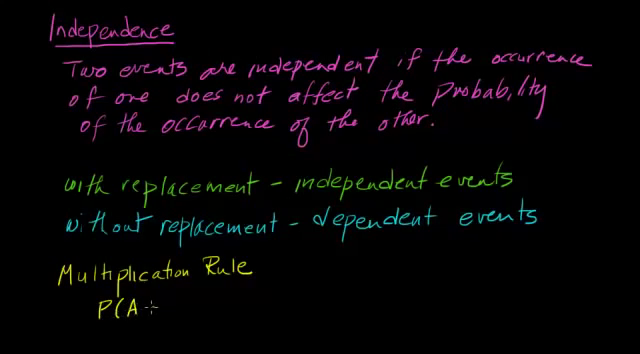 Independence
Two events are independent if the occurrence
of one does not affect the Probability
of the occurrence of the other.
with replacement - independent events
without replacement - dependent events
Multiplication Rule
P(A